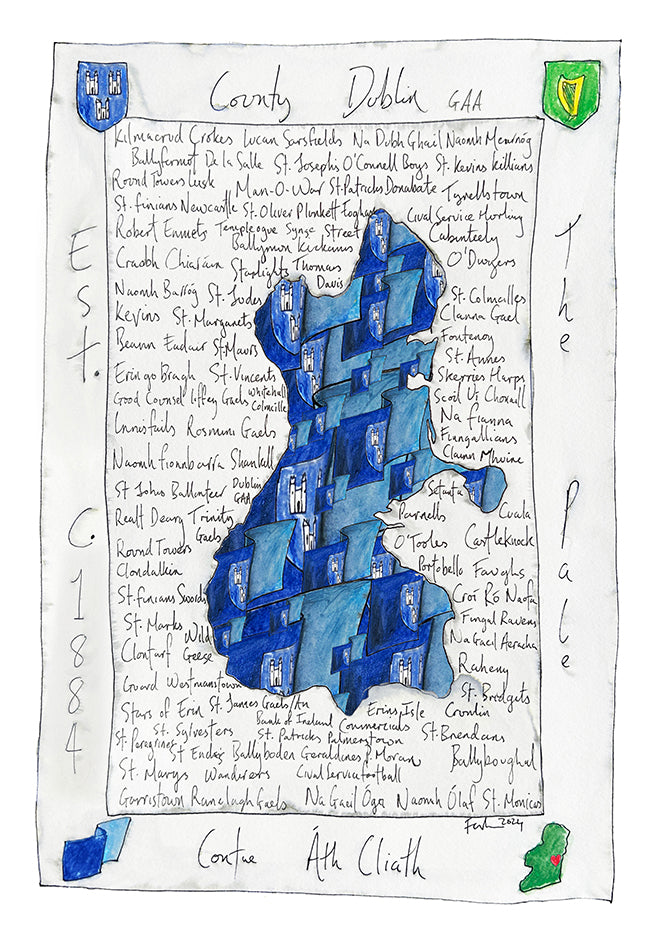 County Dublin GAA
Kilmacrud Crokes Lucan Sarsfields Na Dubh Ghail Naomh Mearnóg
Ballyfermot De la Salle St. Josephs O'Connell Boys St. Kevins Killians
Round Towers Lusk Man-O-War St Patricks Donabate Tyrellstown
St. finians Newcastle St. Oliver Plunkett Eoghan Civil Service Hurling
Robert Emmets Templeogue Synge Street Cabinteely
Ballymun Kickhams O'Dwyers
Craobh Chiaráin Starlights Thomas Davis
Naomh Barróg St. Judes St. Colmcilles
Kevins St. Margarets Clanna Gael
Fontenoy
Beann Eadair St Maurs St. Annes
Erin go Bragh St. Vincents Skerries Harps
Good Counsel liffey Gaels Whitehall Colmcille Scoil Uí Chonaill
Innisfails Rosmini Gaels Na fianna
Fingallians
Naomh fionnbarra Shankill Clann Mhuire
St Johns Ballinteer Dublin GAA Setanta Cuala
Realt Dearg Trinity Gaels Parnells
Round Towers Clondalkin O'Tooles Castleknock
Portobello Faughs
St. finians Swords Croí Ró Naofa
St. Marks Wild Geese Fingal Ravens
Clontarf Na Gaeil Aeracha
Raheny
Guard Westmanstown St. Bridgets
Stars of Erin St. James Gaels/An Erins Isle Crumlin
Bank of Ireland Commercials
St. Peregrines St. Sylvesters St. Patricks Palmerstown St. Brendans
St Endas Ballyboden Geraldines P. Moran Ballyboughal
St. Marys Wanderers Civil Service football
Garristown Ranelagh Gaels Na Gaeil Óga Naomh Ólaf St. Monicas
2024
Est. C. 1884
The Pale
Contae Áth Cliath